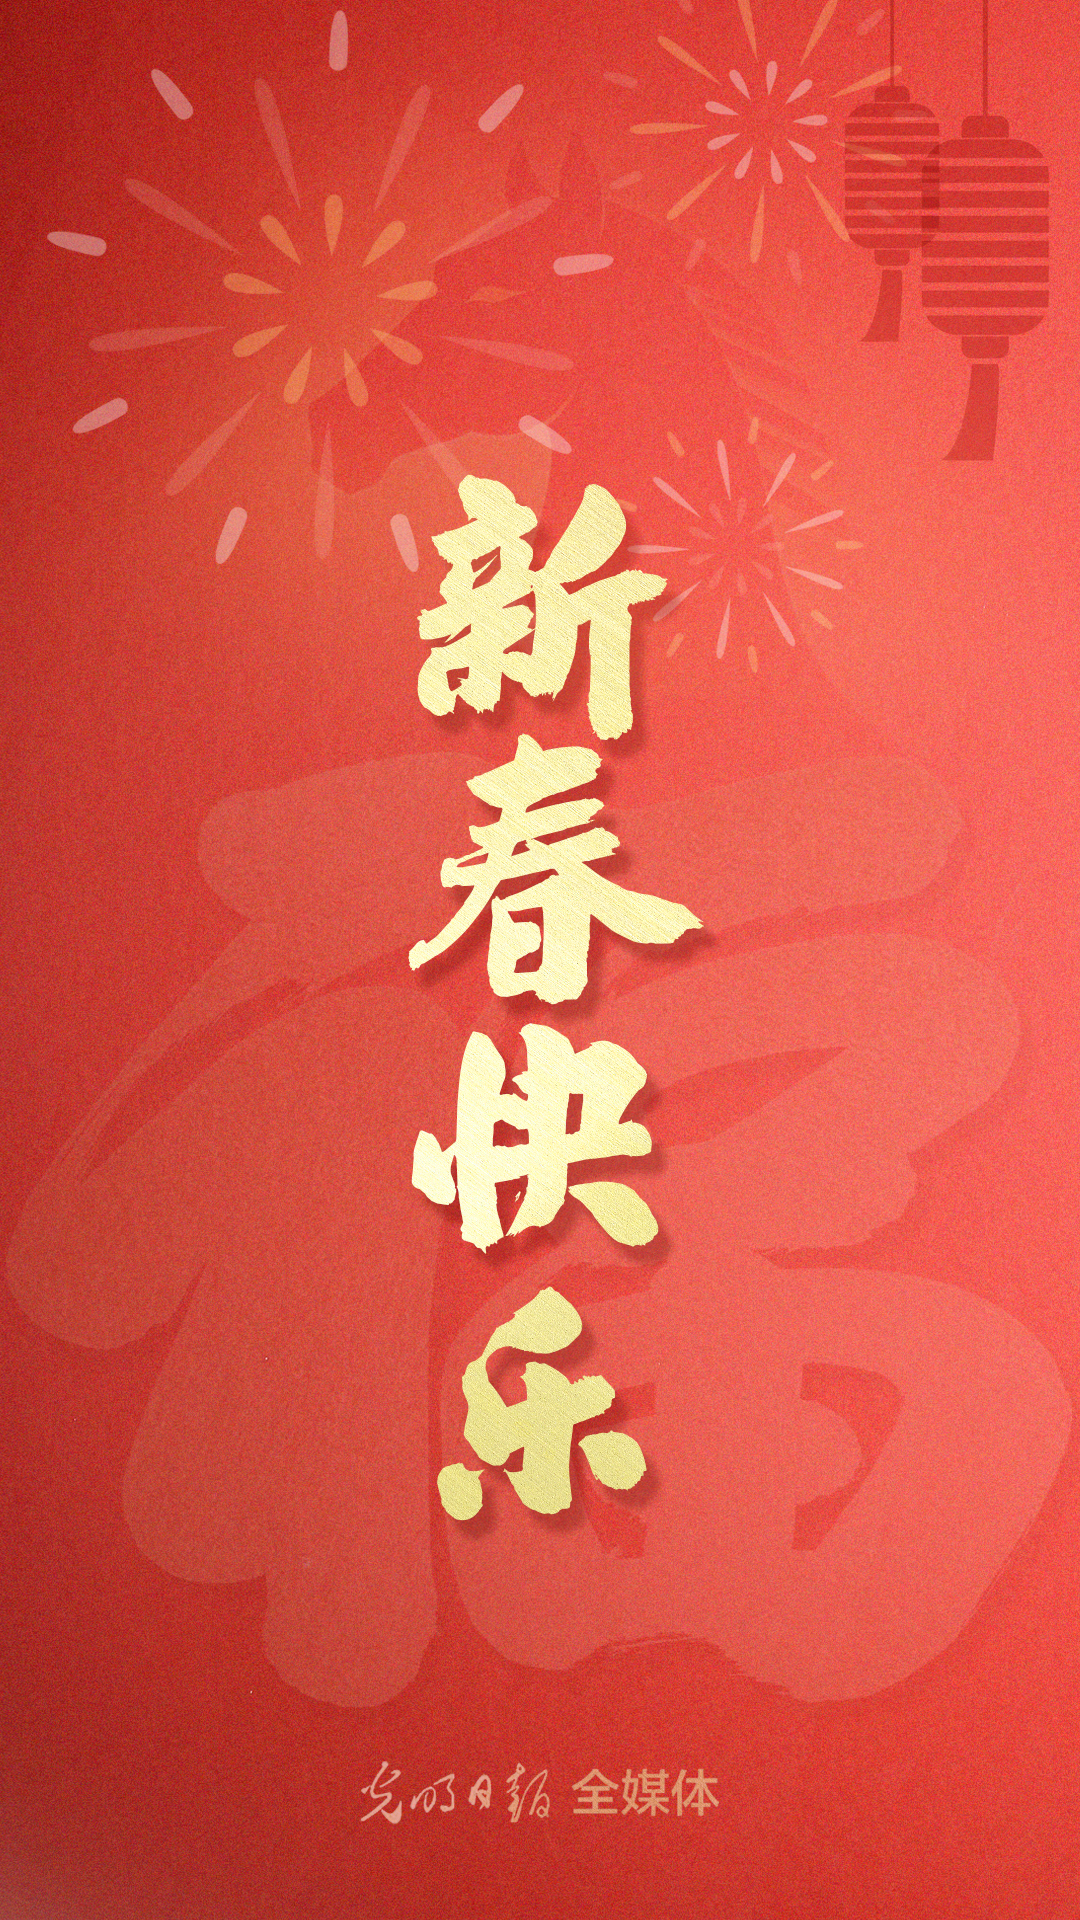 新春快乐
福
光明日报 全媒体